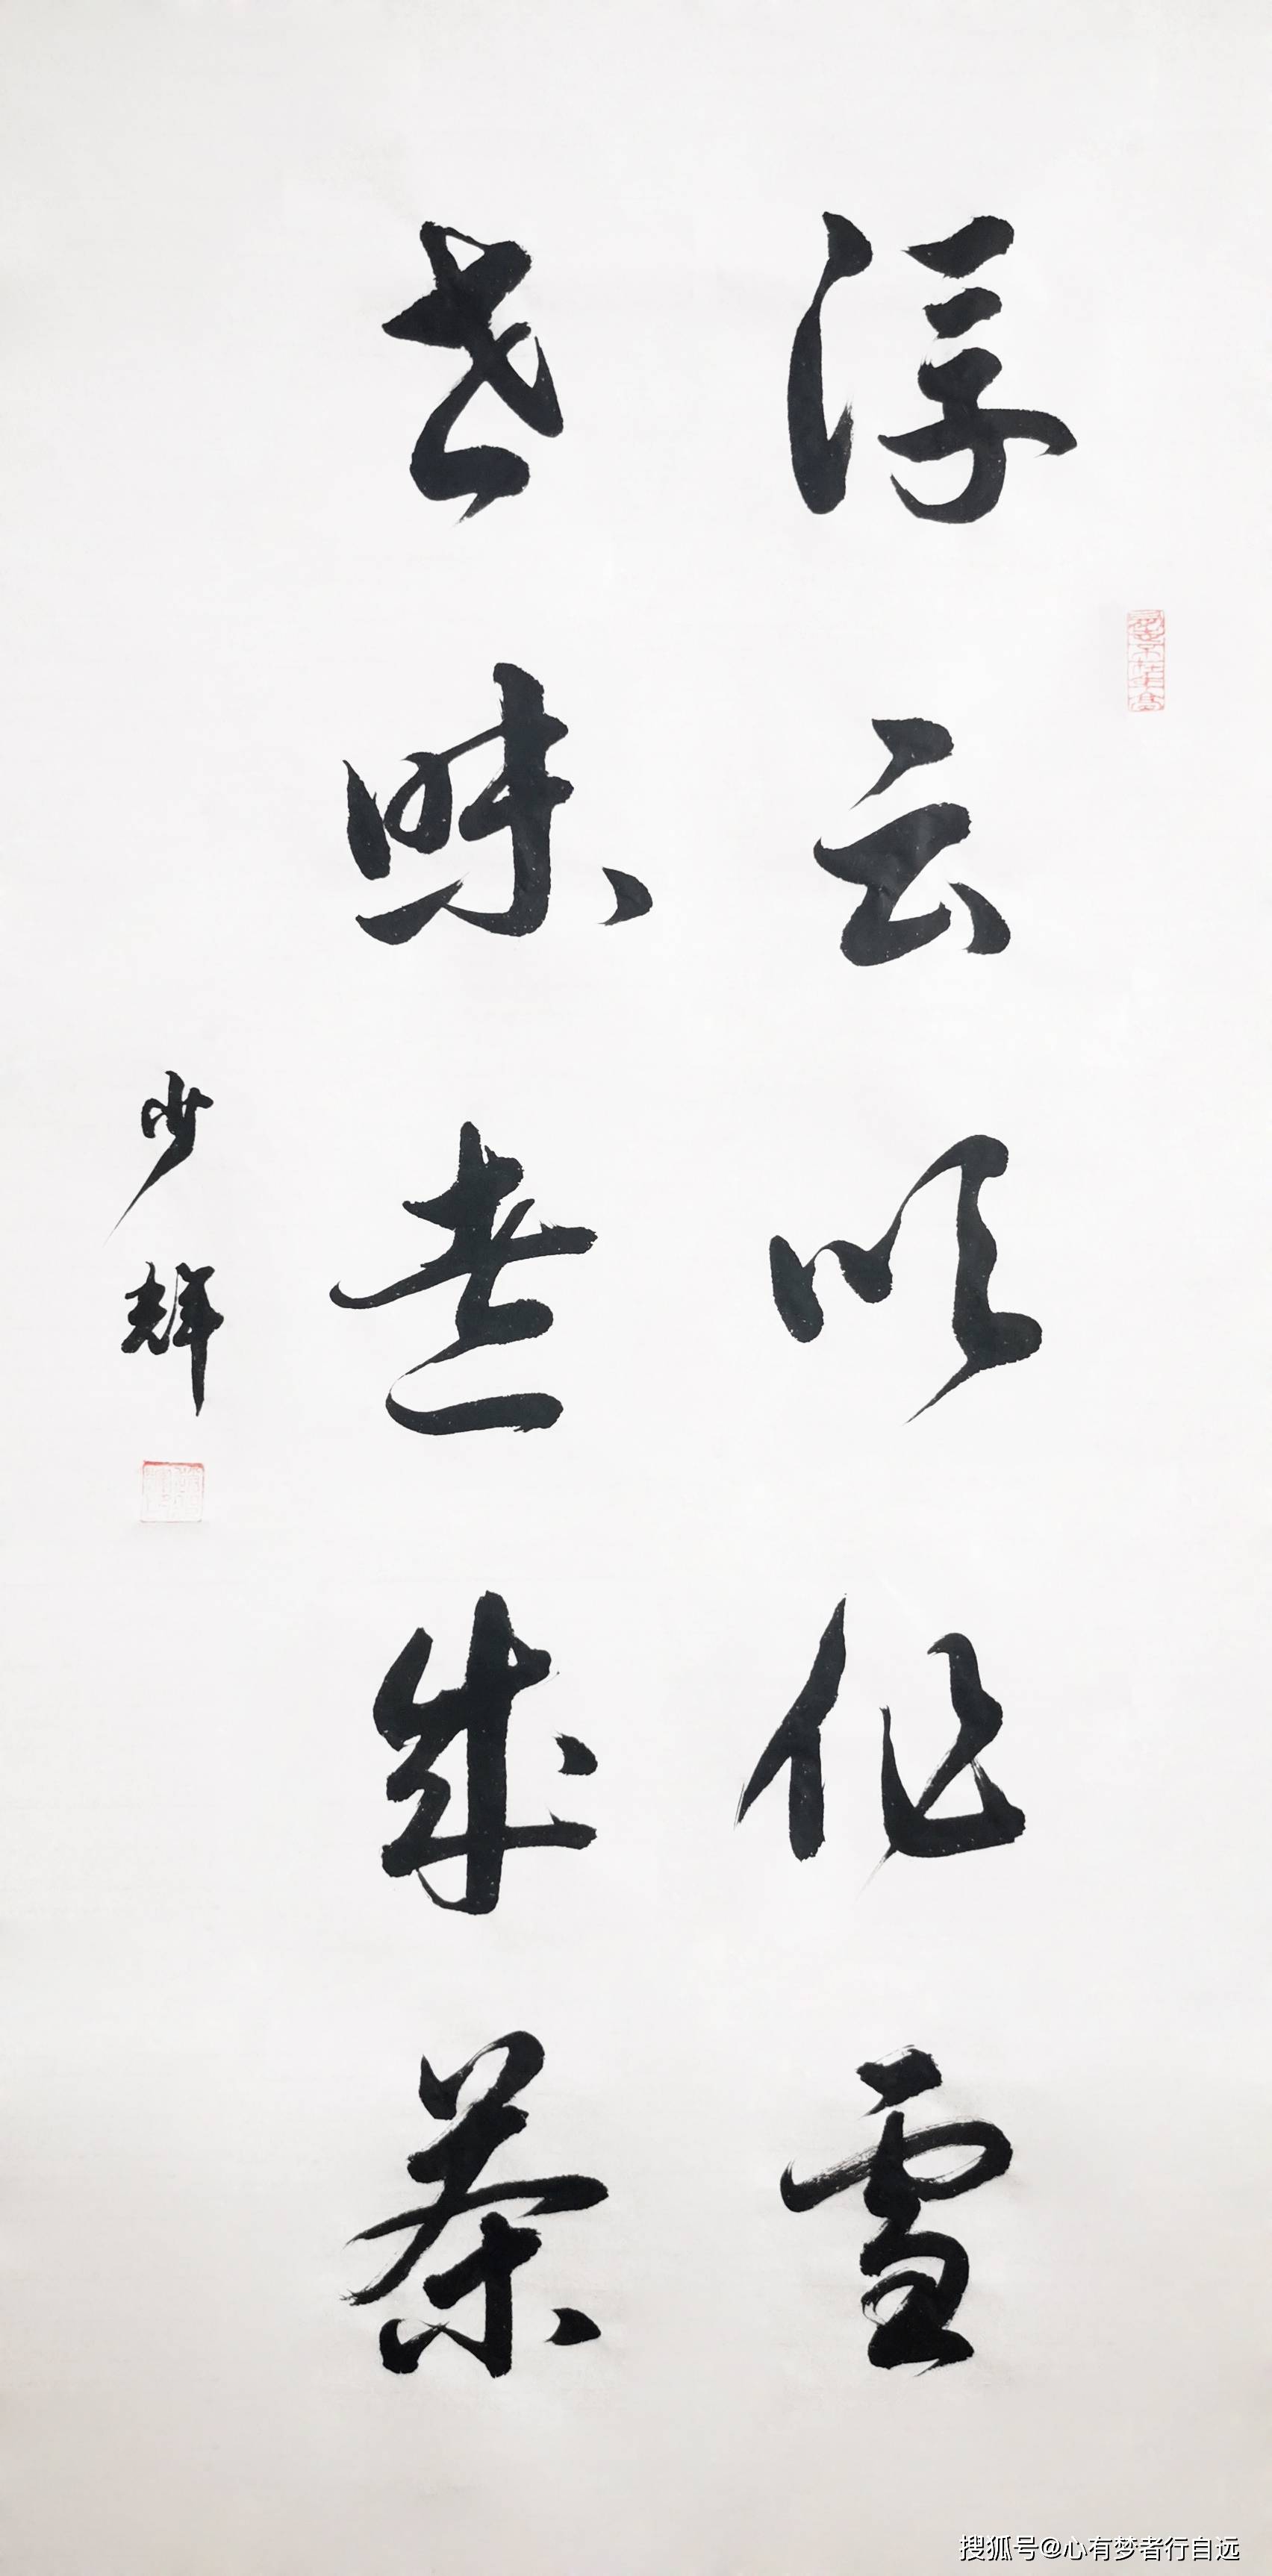 浮云似作雪
世味煮成茶
少辉
搜狐号@心有梦者行自远